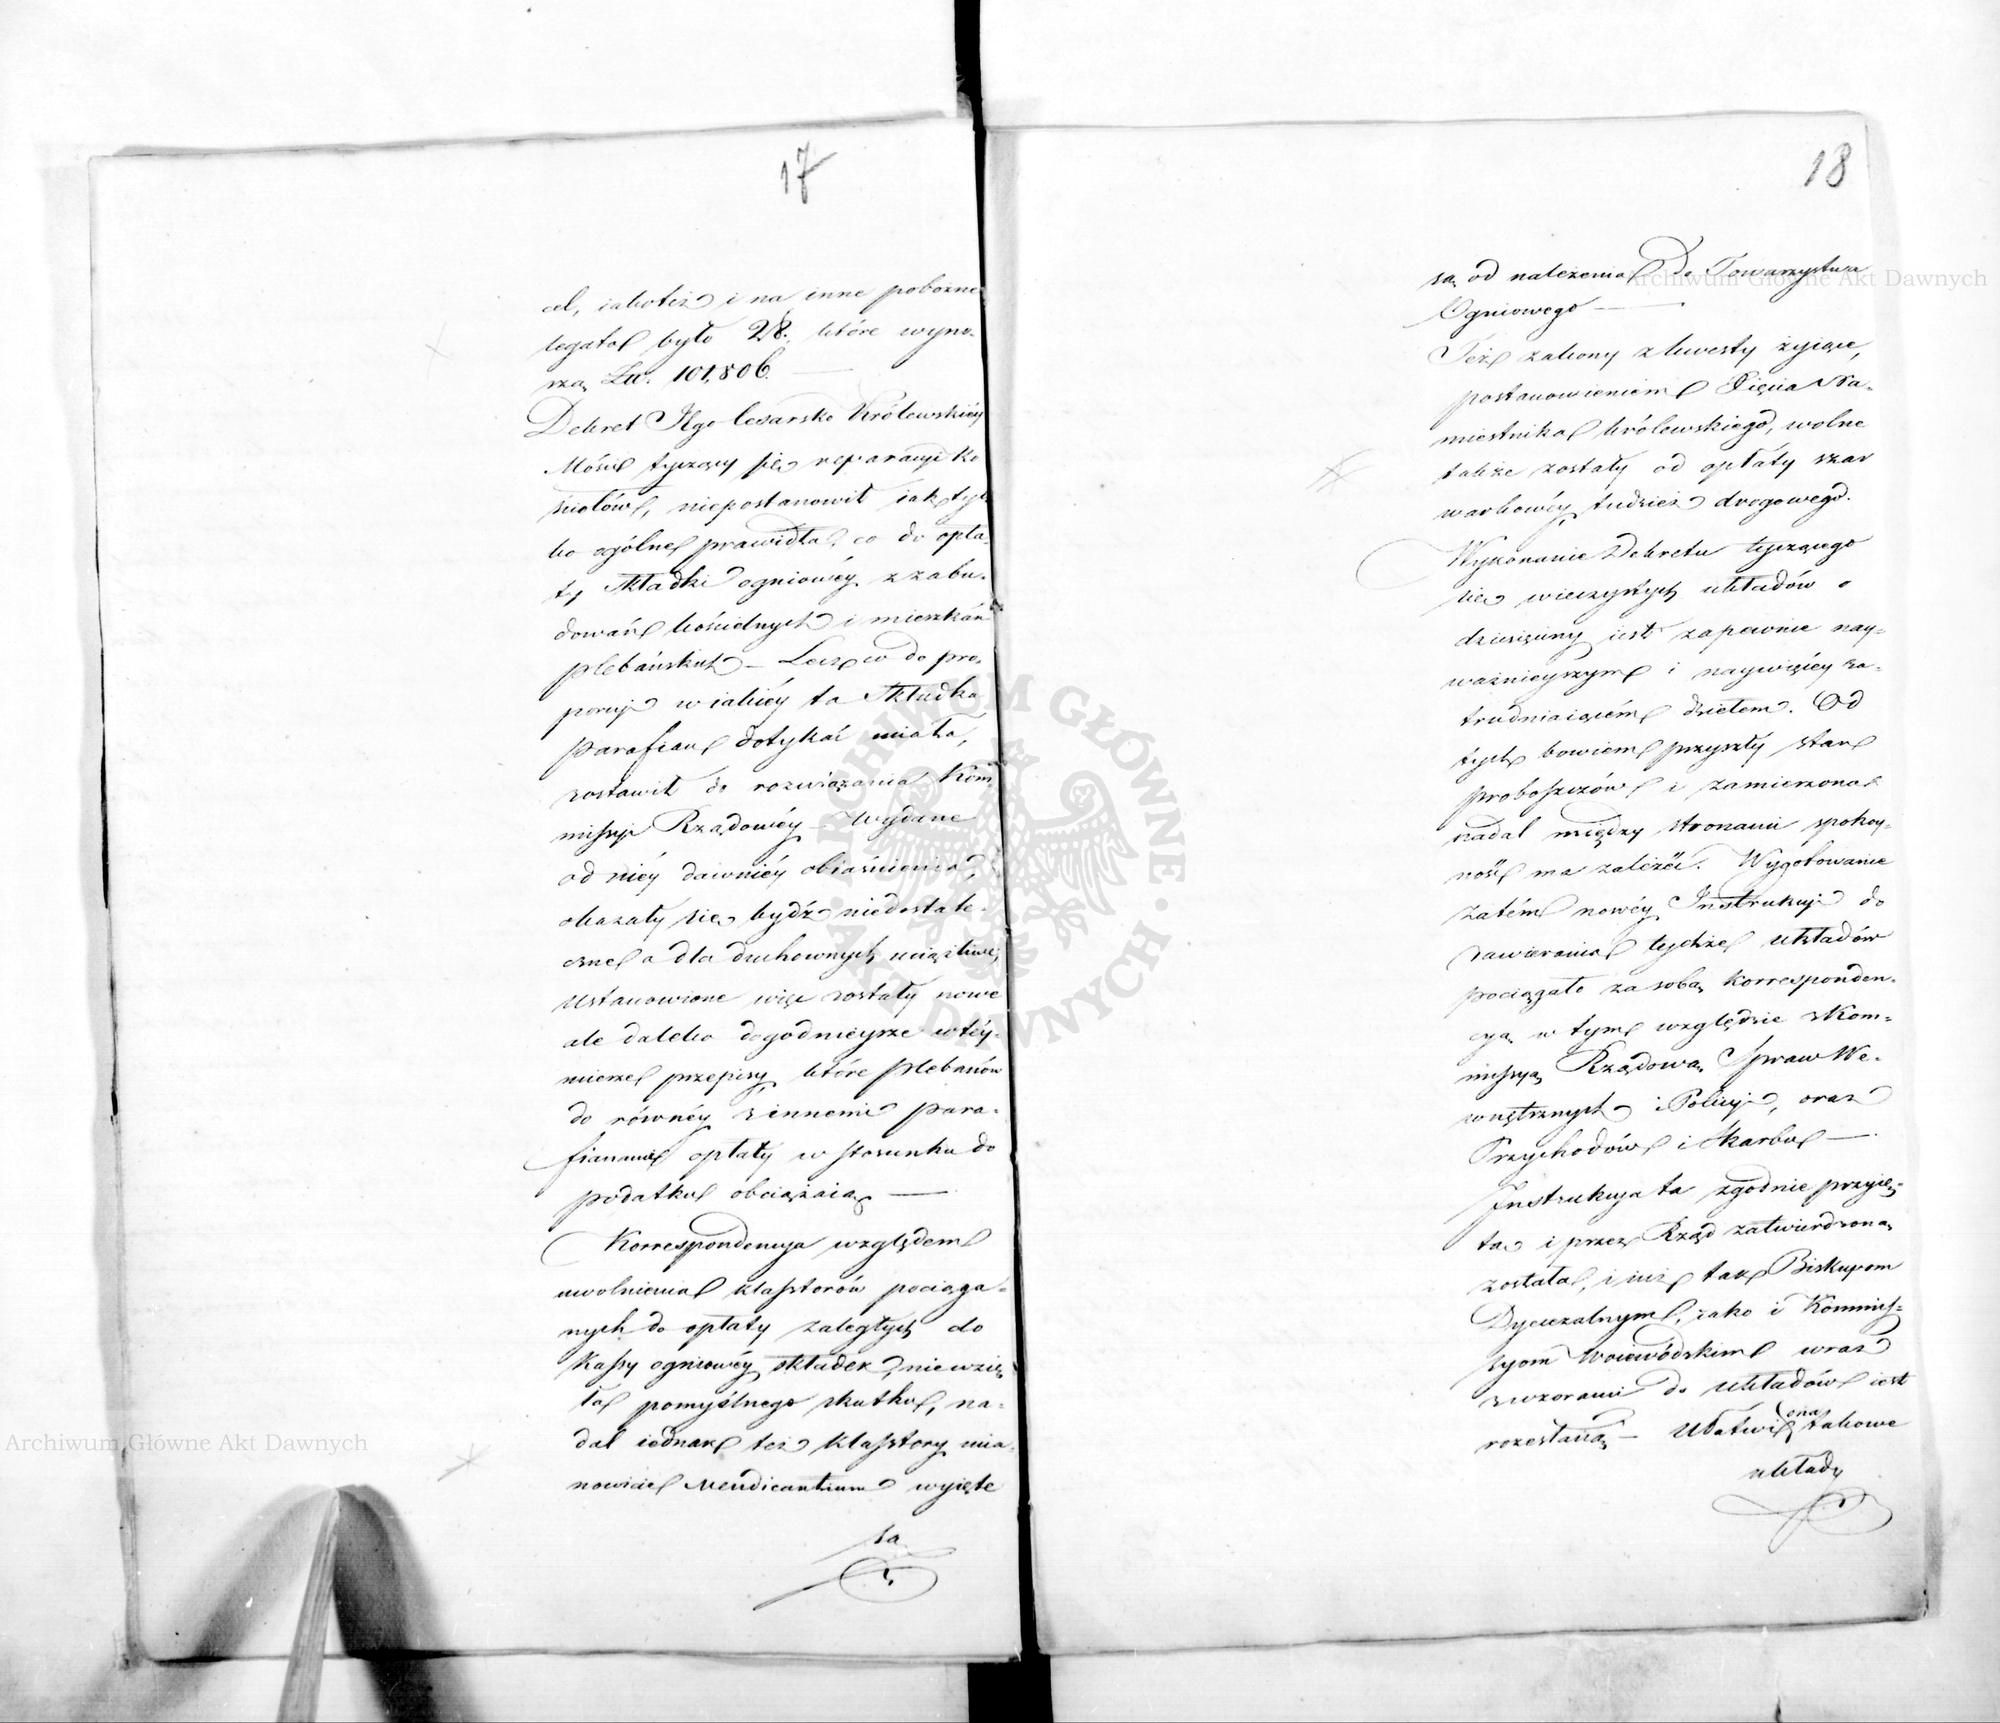 17
cel, iakotéż i na inne pobożne
legata było 28. które wyno-
szą Zło. 101,806.
Dekret Jego Cesarsko Królewskiéy
Mości tyczący się reparacyi ko
ściołów, niepostanowił iak tyl
ko ogólne prawidła, co do opła-
ty składki ogniowéy z zabu-
dowań kościelnych i mieszkań
plebańskich — Lecz co do pro-
porcyi w iakiéy ta składka
parafian dotykać miała,
zostawił do rozwiązania Kom-
missyi Rządowéy — Wydane
od niéy dawniéy obiaśnienia,
okazały się bydź niedostate-
czne a dla duchownych uciążliwe,
ustanowione więc zostały nowe
ale daleko dogodnieysze w téy
mierze przepisy, które plebanów
do równéy z innemi para-
fianami opłaty w stosunku do
podatku obciążaią —
Korrespondencya względem
uwolnienia klasztorów pociąga-
nych do opłaty zaległych do
Kassy ogniowéy składek, niewzię
ła pomyślnego skutku, na-
dal iednak też klasztory mia-
nowicie Mendicantium wyięte
są
18
są od należenia do Towarzystwa
Ogniowego —
Też zakony z kwesty żyiące,
postanowieniem Xięcia Na-
miestnika królewskiego, wolne
także zostały od opłaty szar
warkowéy, tudzież drogowego.
Wykonanie Dekretu tyczącego
się wieczystych układów o
dziesięciny iest zapewnie nay-
ważnieyszym i naywięcéy za-
trudniaiącém dziełem. Od
tych bowiem przyszły stan
proboszczów i zamierzona
nadal między stronami spokoy-
ność ma zależéć. Wygotowanie
zatém nowéy Instrukcyi do
zawierania tychże układów
pociągało za sobą korresponden-
cyą w tym względzie z Kom-
missyą Rządową Spraw We-
wnętrznych i Policyi, oraz
Przychodów i Skarbu —
Instrukcya ta zgodnie przyię-
ta i przez Rząd zatwierdzoną
została, i iuż tak Biskupom
Dyecezalnym, iako i Kommis-
syom Woiewódzkim wraz
z wzorami do układów iest
rozesłaną — Ułatwi ona takowe
układy
Archiwum Główne Akt Dawnych
Archiwum Główne Akt Dawnych
ARCHIWUM GŁÓWNE AKT DAWNYCH